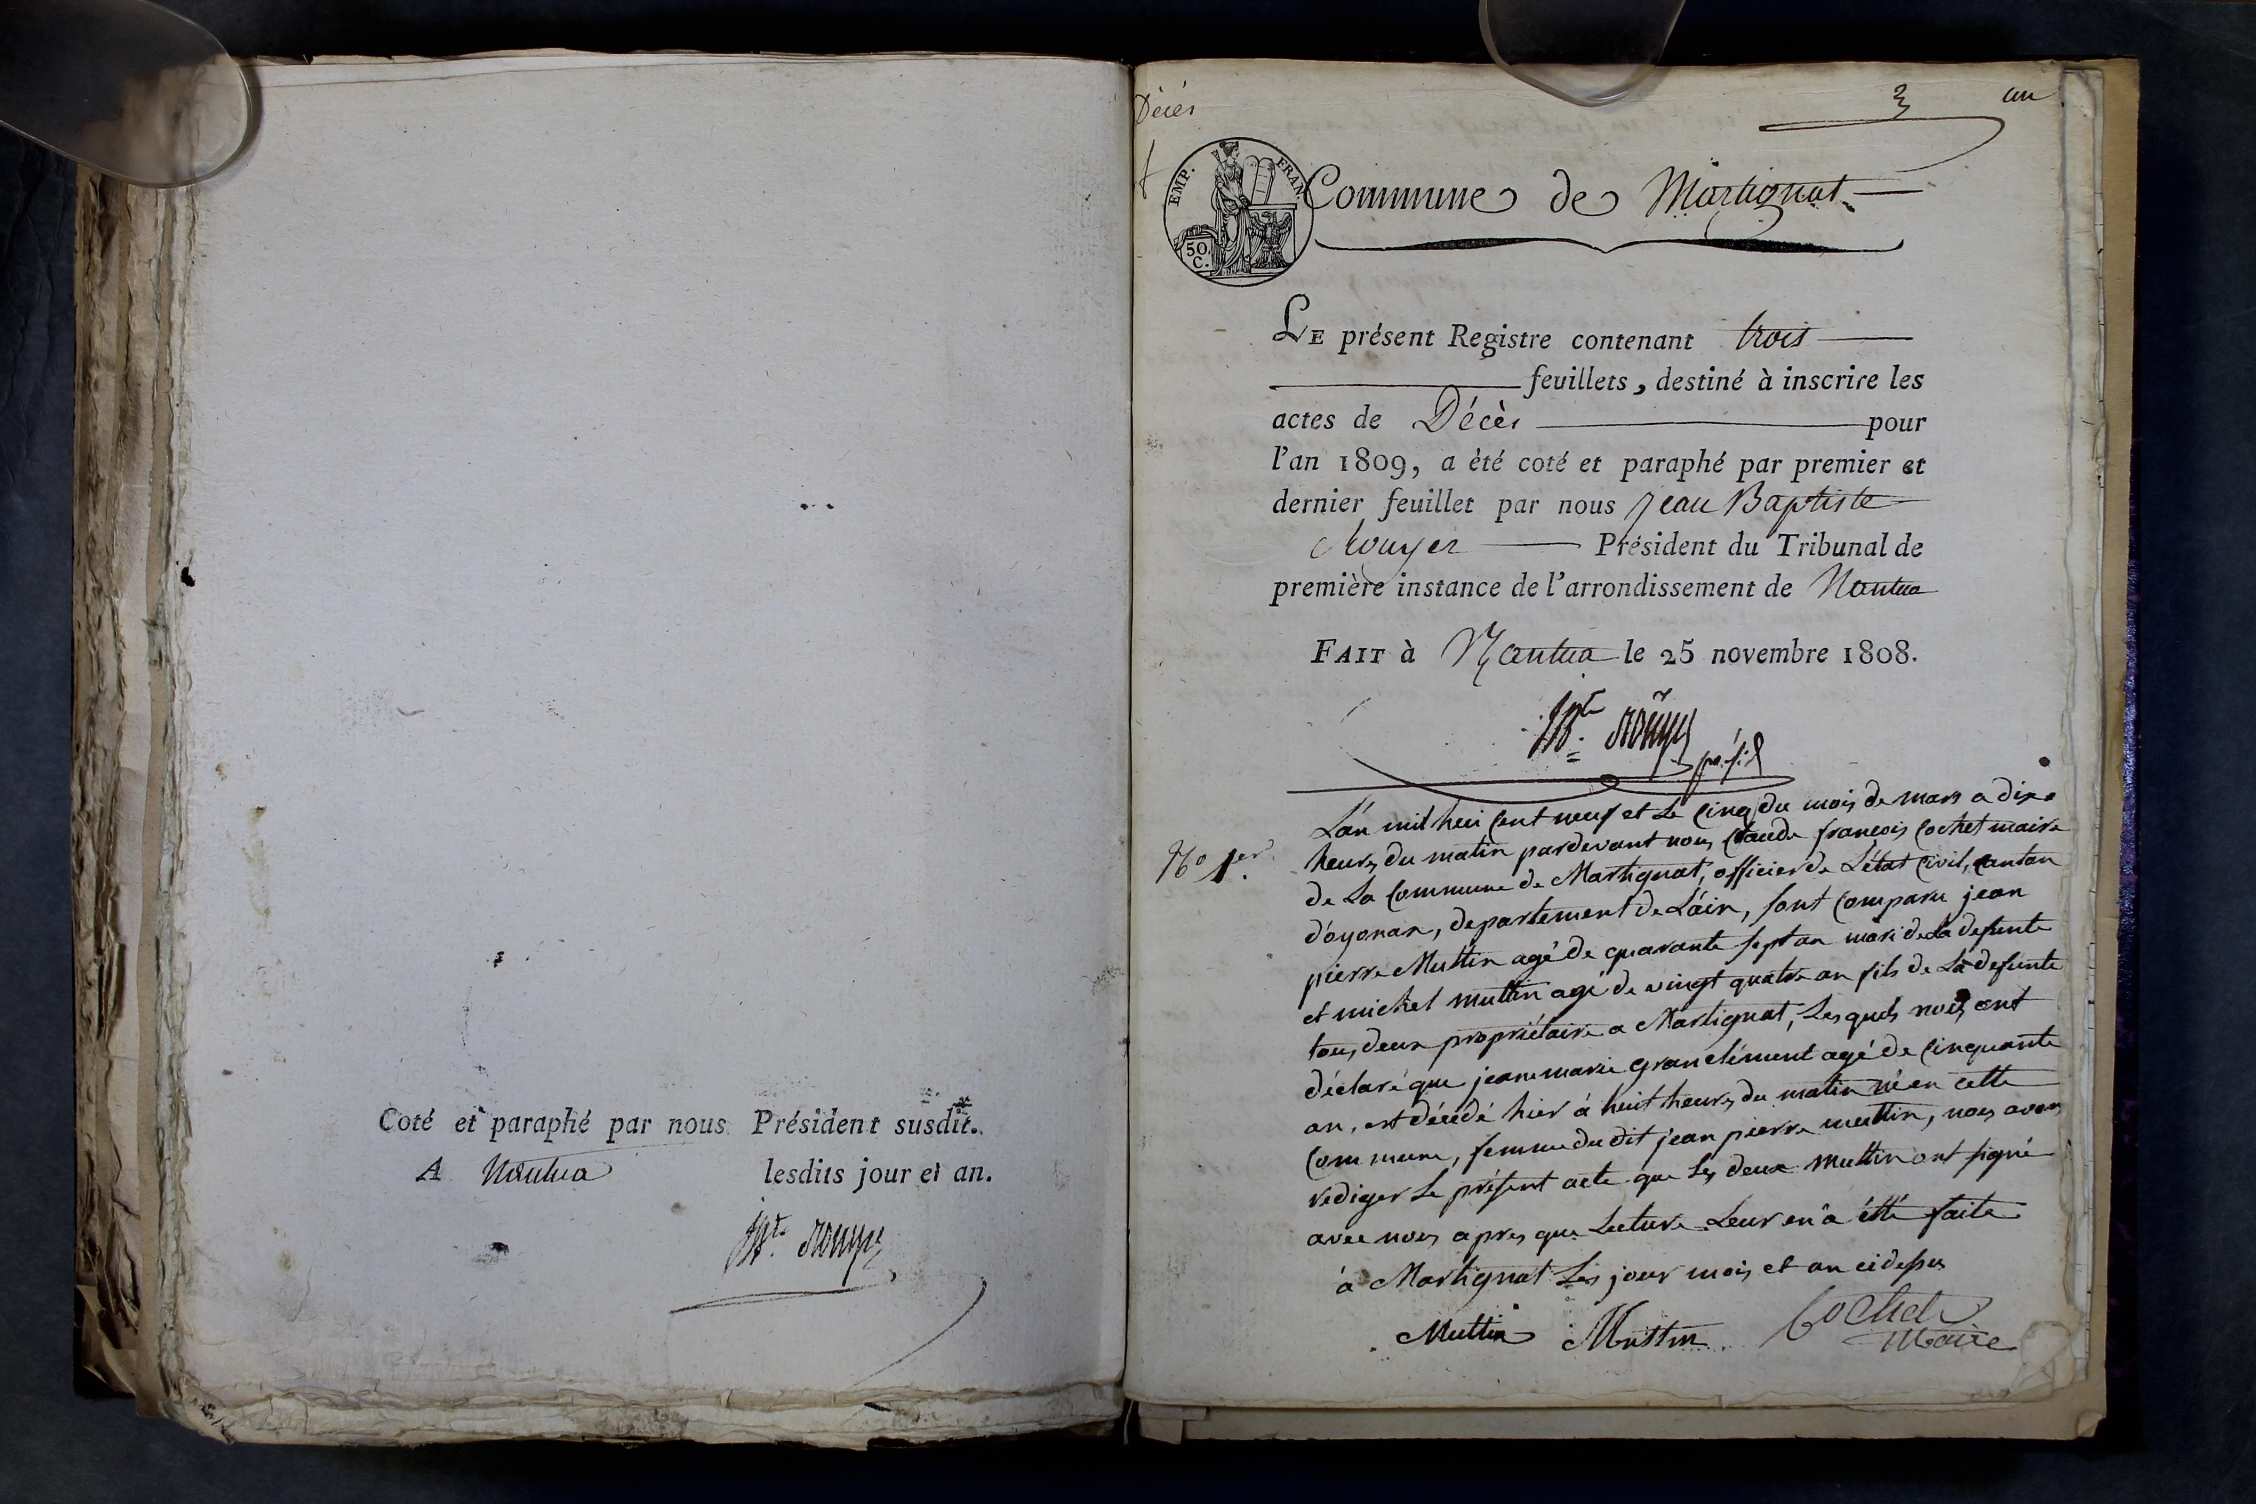 Coté et paraphé par nous Président susdit.
A Nantua lesdits jour et an.
Jn Bte Rouyer
Décès
3 un
EMP. FRAN.
50 C.
Commune de Martignat
LE présent Registre contenant trois
feuillets, destiné à inscrire les
actes de Décès pour
l'an 1809, a été coté et paraphé par premier et
dernier feuillet par nous Jean Baptiste
Rouyer Président du Tribunal de
première instance de l'arrondissement de Nantua
FAIT à Nantua le 25 novembre 1808.
Rouyer
No 1er.
L'án mil huit Cent neuf et Le Cinq du mois de mars a dix
heures du matin pardevant nous Claude françois Cochet maire
de La Commune de Martignat, officier de L'état Civil, Canton
d'oyonax, departement de L'áin, sont Comparu jean
pierre Muttin agé de quarante sept an mari de La defunte
et michel muttin agé de vingt quatre an fils de La defunte
tous deux propriétaire a Martignat, Lesquels nous ont
déclaré que jeanemarie granclément agé de Cinquante
an, est décédé hier á huit heures du matin né en cette
Commune, femme du dit jean pierre muttin, nous avons
rediger Le présent acte que Les deux muttin ont signé
avec nous apres que Lecture Leur en a étté faite
á Martignat Les jour mois et an cidessus
Muttin Muttin Cochet
Maire